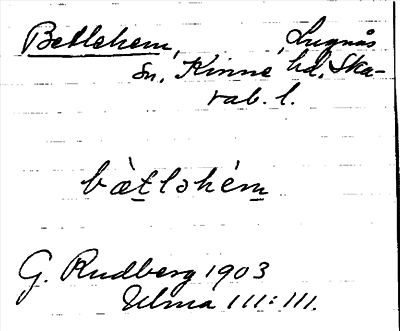 Betlehem, Lugnås
sn, Kinne hd, Ska-
rab. l.
bètləhém
G. Rudberg 1903
Ulma 111:111.